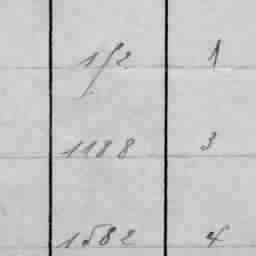 152 1
1188 3
1582 4